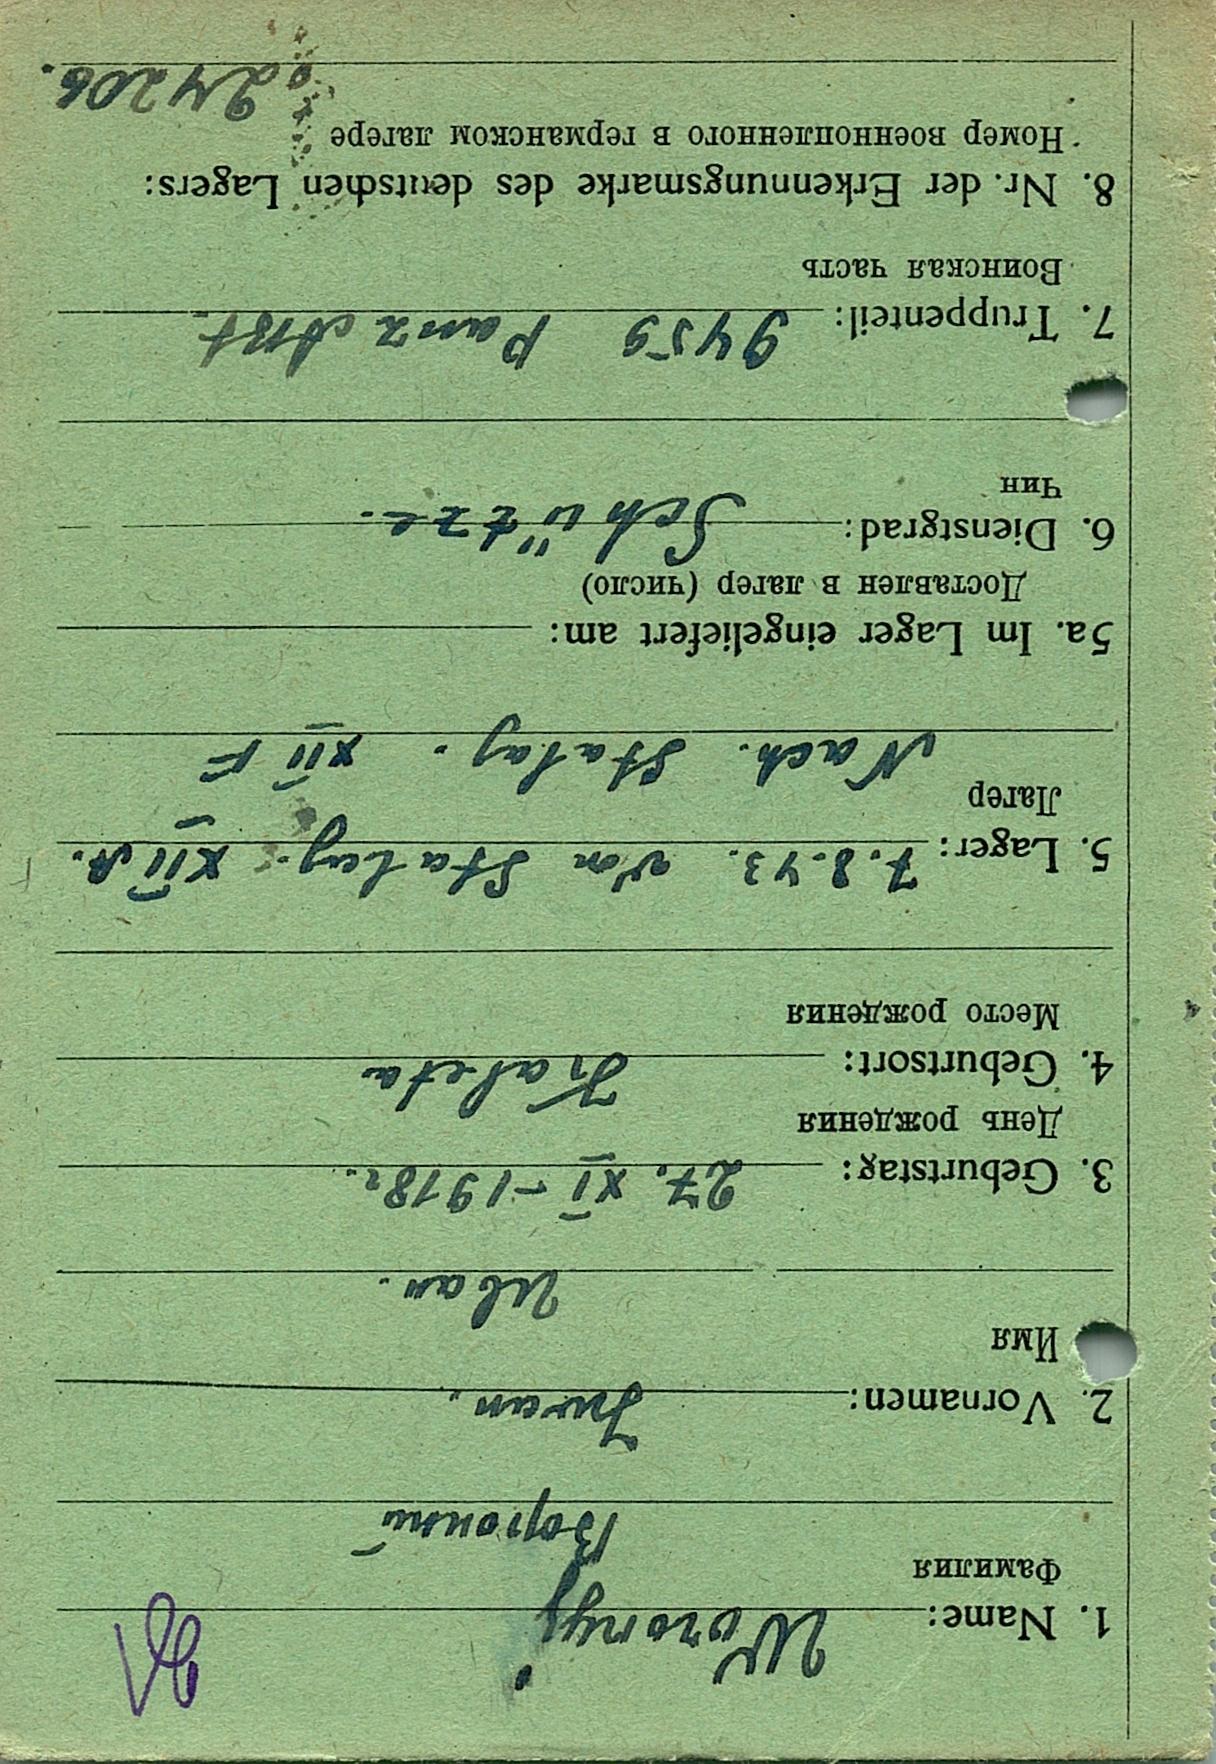 1. Name: Woronyj
Фамилия
Вороний
2. Vornamen: Iwan.
Имя
Иван.
3. Geburtstag: 27. XI - 1918г.
День рождения
4. Geburtsort:
Место рождения
5. Lager: 7.8.43. von Stalag. XII A.
Лагер
Nach. Stalag. XII F
5a. Im Lager eingeliefert am:
Доставлен в лагер (число)
6. Dienstgrad: Schütze.
Чин
7. Truppenteil: 9459 Panz
Воинская часть
8. Nr. der Erkennungsmarke des deutschen Lagers:
Номер военнопленного в германском лагере
24206.